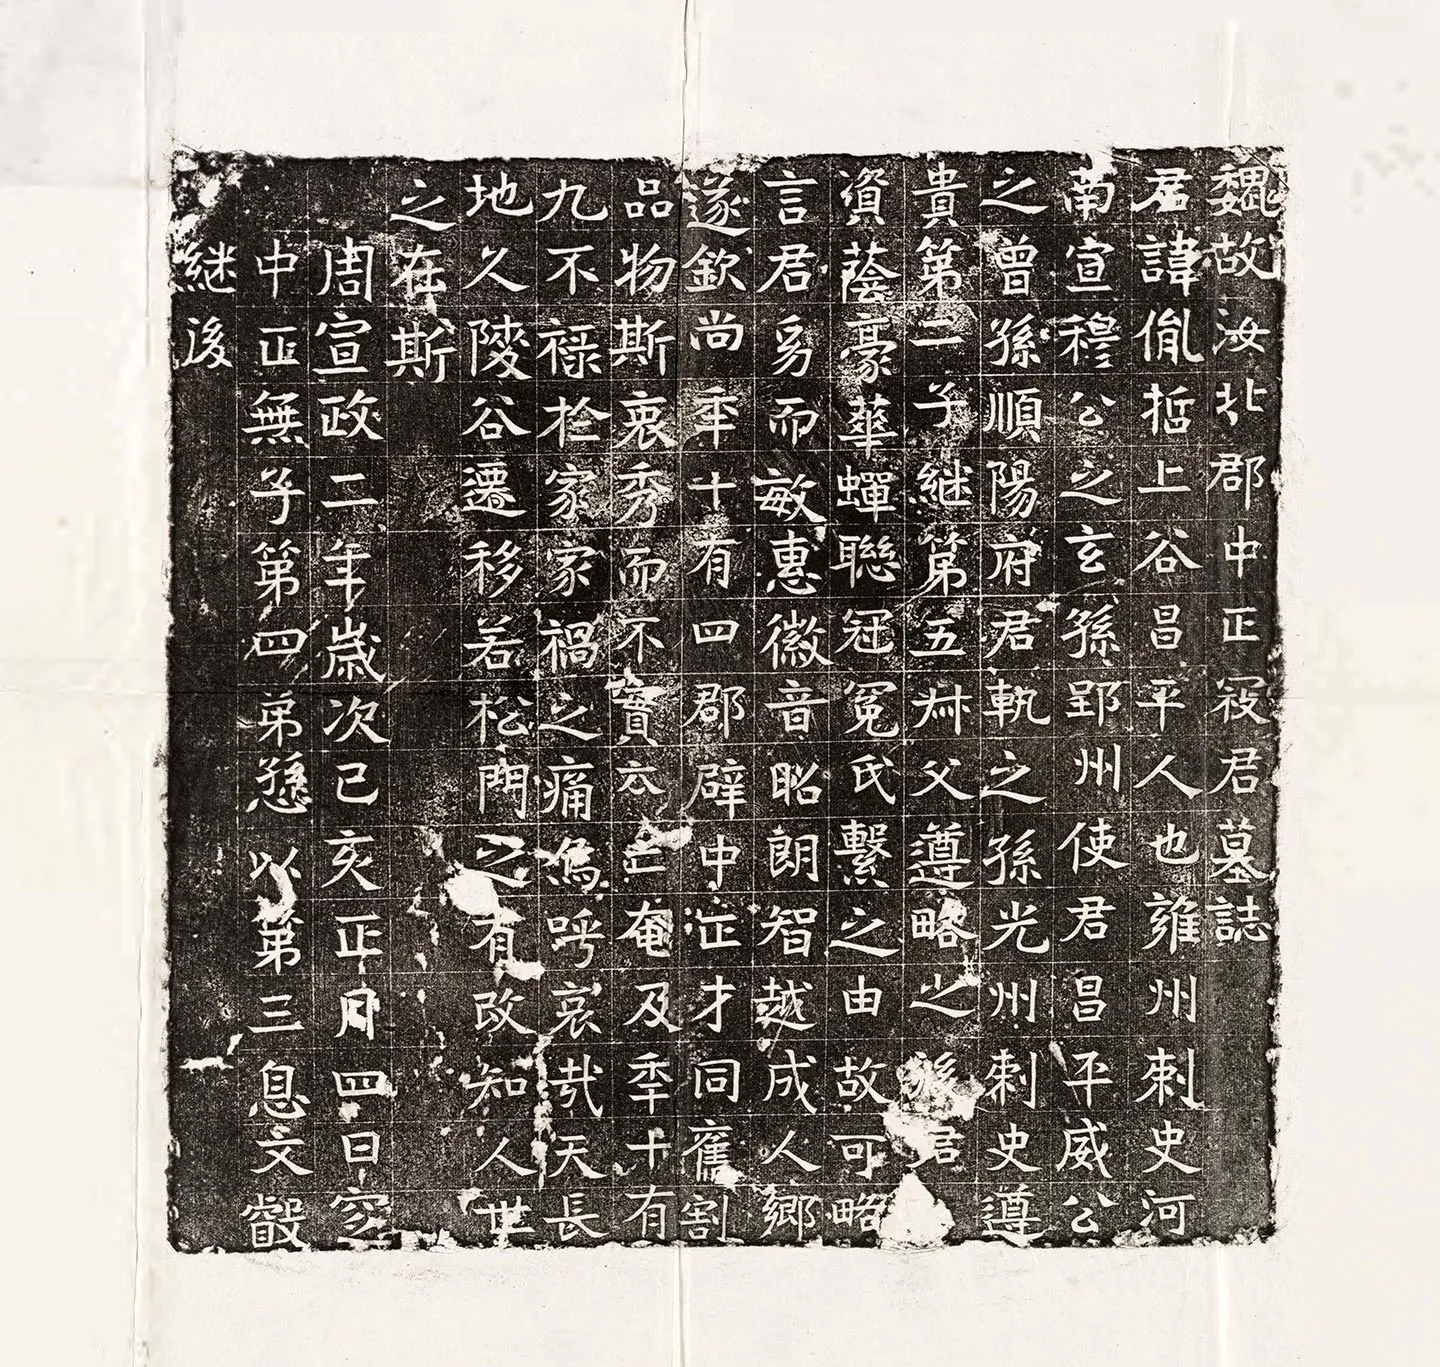 魏故汝北郡中正寇君墓誌
君諱胤哲上谷昌平人也雍州刺史河
南宣穆公之玄孫郢州使君昌平威公
之曾孫順陽府君軌之孫光州刺史遵
貴第二子継第五叔父遵略之後君
資蔭豪華蟬聯冠冕氏繫之由故可略
言君幼而敏惠徽音昭朗智越成人鄉
遂欽尚年十有四郡辟中正才同舊割
品物斯衷秀而不實云亡奄及年十有
九不祿於家家禍之痛烏呼哀哉天長
地久陵谷遷移若松門之有改知人世
之在斯
周宣政二年歲次己亥正月四日窆
中正無子第四弟愻以第三息文叡
継後